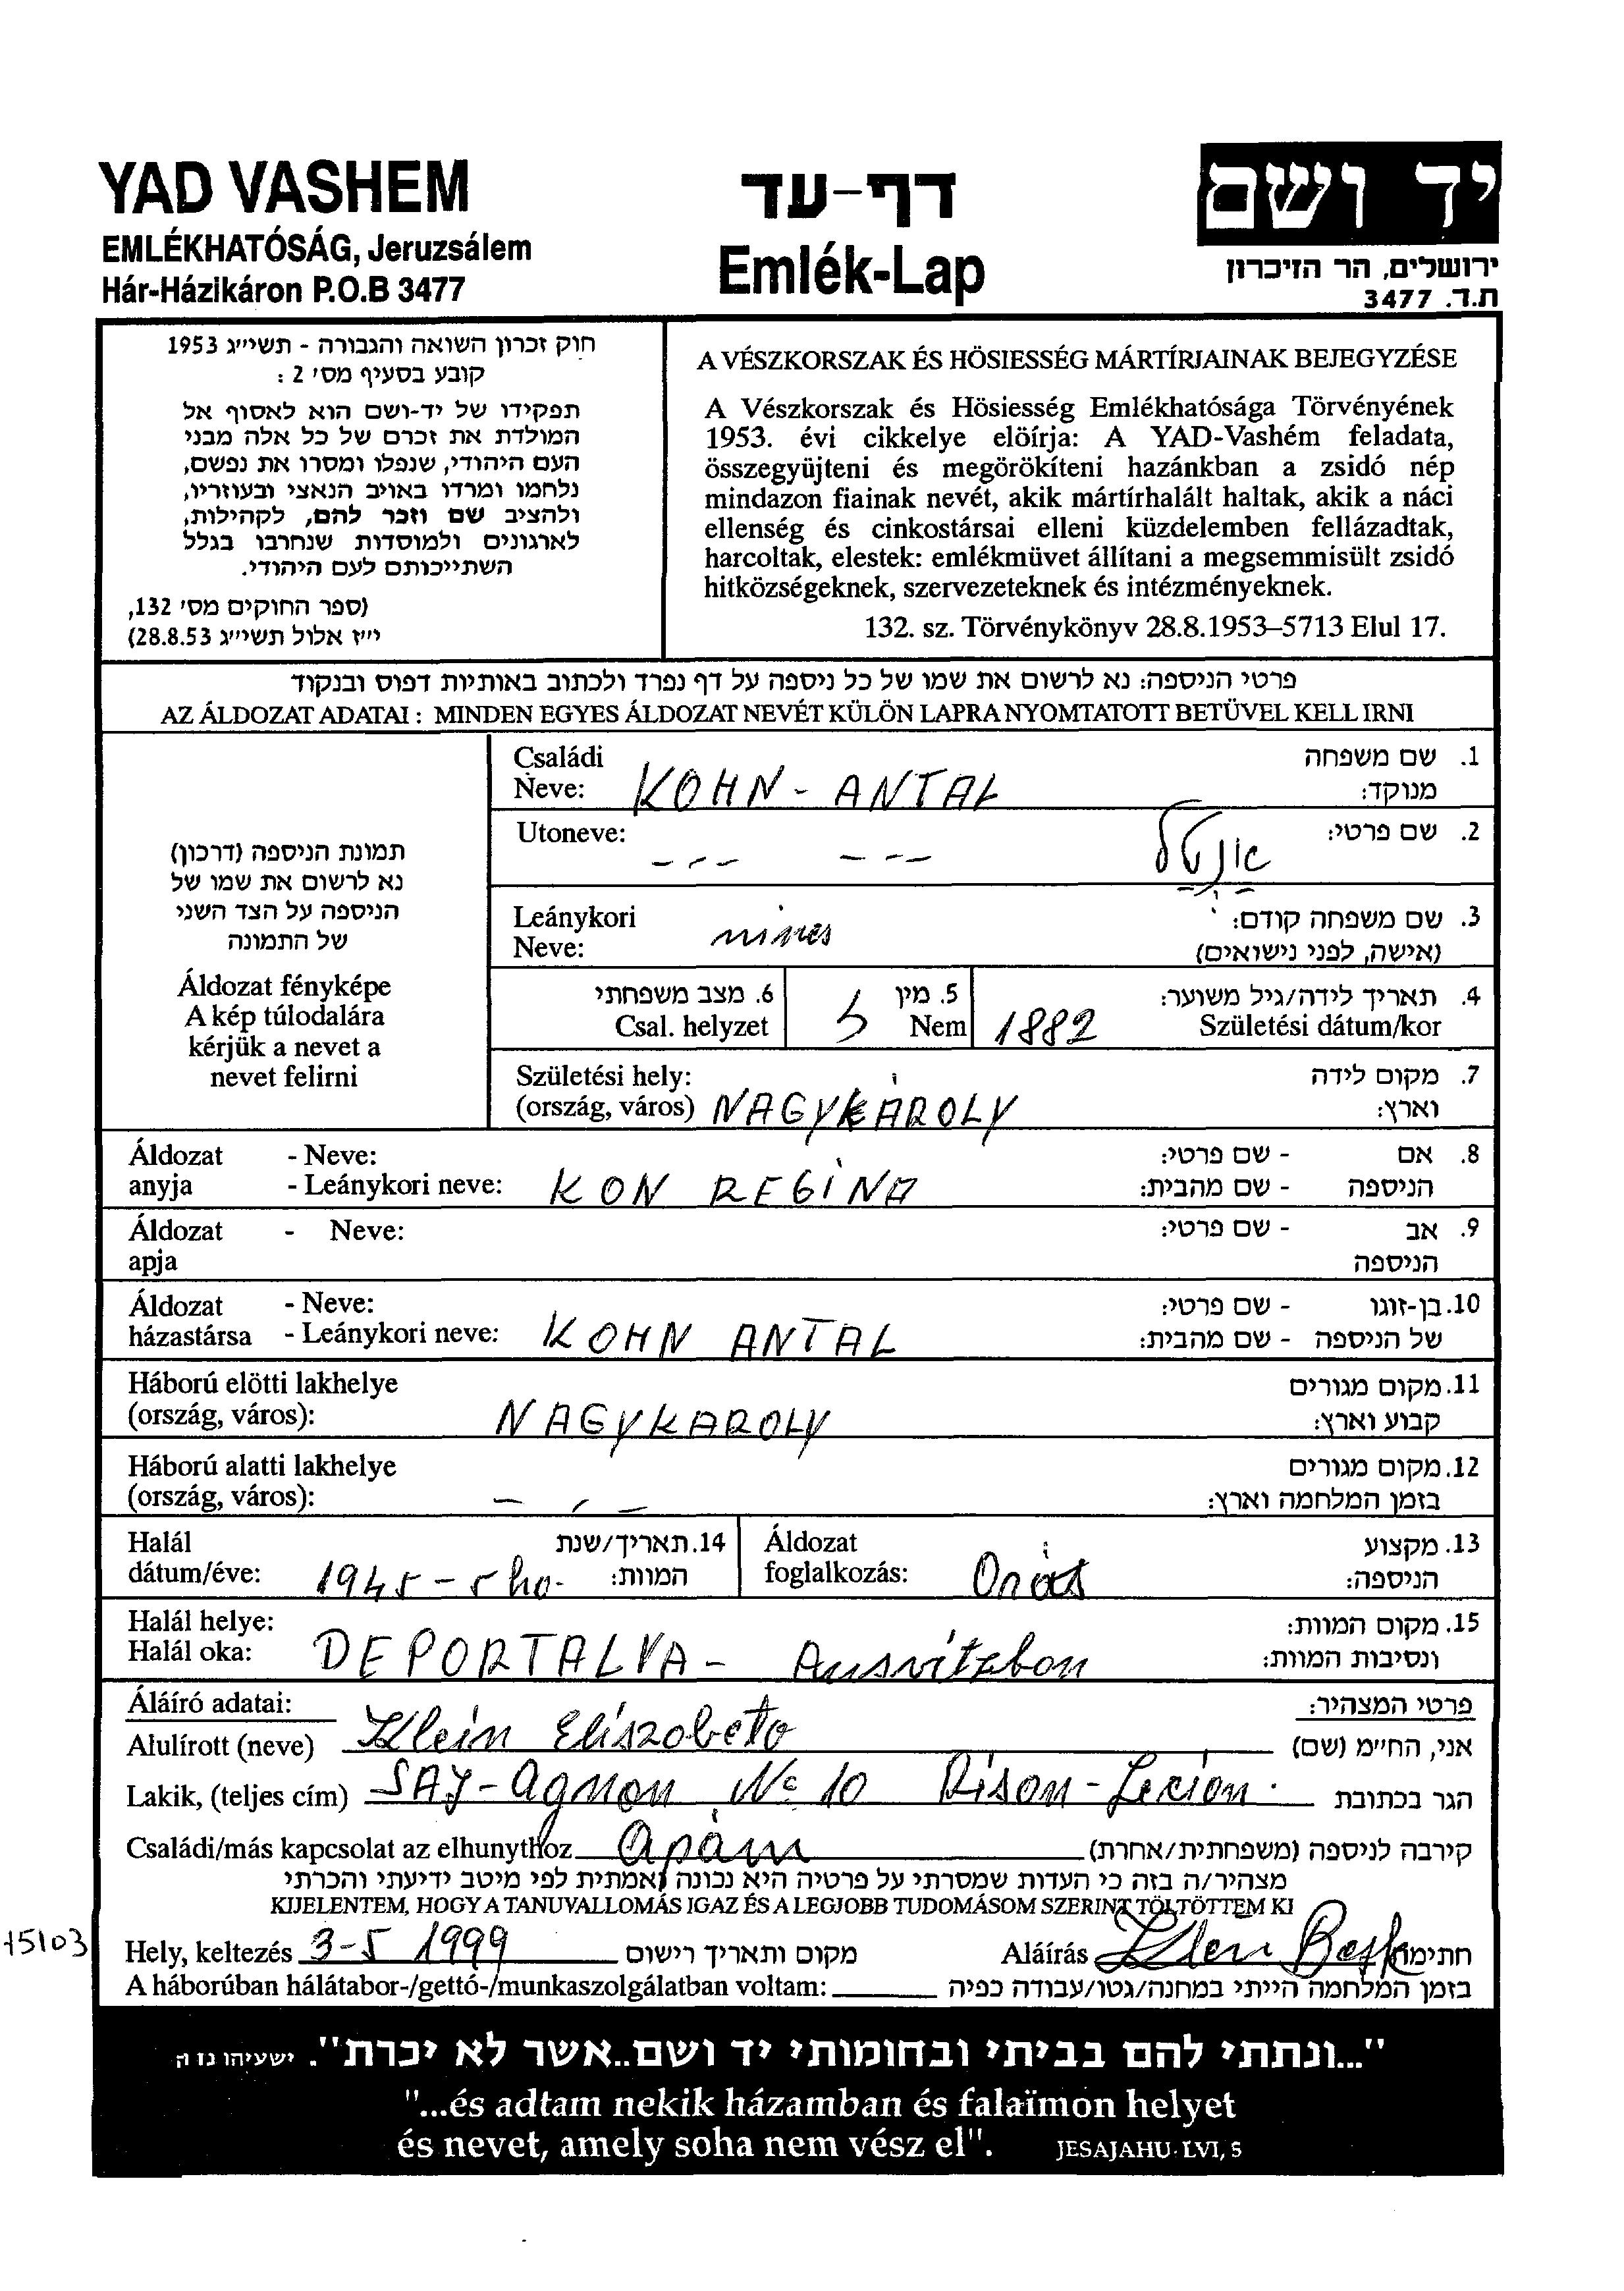 YAD VASHEM
EMLÉKHATÓSÁG, Jeruzsálem
Hár-Házikáron P.O.B 3477
דף-עד
Emlék-Lap
יד ושם
ירושלים, הר הזיכרון
ת.ד. 3477
חוק זכרון השואה והגבורה - תשי״ג 1953
קובע בסעיף מס׳ 2 :
תפקידו של יד-ושם הוא לאסוף אל
המולדת את זכרם של כל אלה מבני
העם היהודי, שנפלו ומסרו את נפשם,
נלחמו ומרדו באויב הנאצי ובעוזריו,
ולהציב שם וזכר להם, לקהילות,
לארגונים ולמוסדות שנחרבו בגלל
השתייכותם לעם היהודי.
(ספר החוקים מס׳ 132,
י״ז אלול תשי״ג 28.8.53)
A VÉSZKORSZAK ÉS HÖSIESSÉG MÁRTÍRJAINAK BEJEGYZÉSE
A Vészkorszak és Hösiesség Emlékhatósága Törvényének
1953. évi cikkelye elöírja: A YAD-Vashém feladata,
összegyüjteni és megörökíteni hazánkban a zsidó nép
mindazon fiainak nevét, akik mártírhalált haltak, akik a náci
ellenség és cinkostársai elleni küzdelemben fellázadtak,
harcoltak, elestek: emlékmüvet állítani a megsemmisült zsidó
hitközségeknek, szervezeteknek és intézményeknek.
132. sz. Törvénykönyv 28.8.1953–5713 Elul 17.
פרטי הניספה: נא לרשום את שמו של כל ניספה על דף נפרד ולכתוב באותיות דפוס ובנקוד
AZ ÁLDOZAT ADATAI : MINDEN EGYES ÁLDOZAT NEVÉT KÜLÖN LAPRA NYOMTATOTT BETÜVEL KELL IRNI
תמונת הניספה (דרכון)
נא לרשום את שמו של
הניספה על הצד השני
של התמונה
Áldozat fényképe
A kép túlodalára
kérjük a nevet a
nevet felirni
Családi 1. שם משפחה
Neve: KOHN - ANTAL מנוקד:
Utoneve: --- --- אנטל 2. שם פרטי:
Leánykori 3. שם משפחה קודם:
Neve: nincs (אישה, לפני נישואים)
6. מצב משפחתי 5. מין 4. תאריך לידה/גיל משוער:
Csal. helyzet Nem 1882 Születési dátum/kor
Születési hely: 7. מקום לידה
(ország, város) NAGYKÁROLY וארץ:
Áldozat - Neve: 8. אם - שם פרטי:
anyja - Leánykori neve: KON REGINA הניספה - שם מהבית:
Áldozat - Neve: 9. אב - שם פרטי:
apja הניספה
Áldozat - Neve: 10. בן-זוגו - שם פרטי:
házastársa - Leánykori neve: KOHN ANTAL של הניספה - שם מהבית:
Háború elötti lakhelye 11. מקום מגורים
(ország, város): NAGYKAROLY קבוע וארץ:
Háború alatti lakhelye 12. מקום מגורים
(ország, város): - - - בזמן המלחמה וארץ:
Halál 14. תאריך/שנת Áldozat 13. מקצוע
dátum/éve: 1945 - 5 ho- המוות: foglalkozás: Orás הניספה:
Halál helye: 15. מקום המוות:
Halál oka: DEPORTALVA - Ausvitzbon ונסיבות המוות:
Áláíró adatai: פרטי המצהיר:
Alulírott (neve) Klein Eliszobeta אני, הח״מ (שם)
Lakik, (teljes cím) SAJ-Agnon No 10 Rison-Lecion. הגר בכתובת
Családi/más kapcsolat az elhunythoz Apám קירבה לניספה (משפחתית/אחרת)
מצהיר/ה בזה כי העדות שמסרתי על פרטיה היא נכונה ואמתית לפי מיטב ידיעתי והכרתי
KIJELENTEM, HOGY A TANUVALLOMÁS IGAZ ÉS A LEGJOBB TUDOMÁSOM SZERINT TÖLTÖTTEM KI
15103
Hely, keltezés 3-5 1999 מקום ותאריך רישום Aláírás Klein חתימה
A háborúban hálátabor-/gettó-/munkaszolgálatban voltam: בזמן המלחמה הייתי במחנה/גטו/עבודה כפיה
"...ונתתי להם בביתי ובחומותי יד ושם..אשר לא יכרת". ישעיהו נו ה
"...és adtam nekik házamban és falaïmon helyet
és nevet, amely soha nem vész el". JESAJAHU LVI, 5